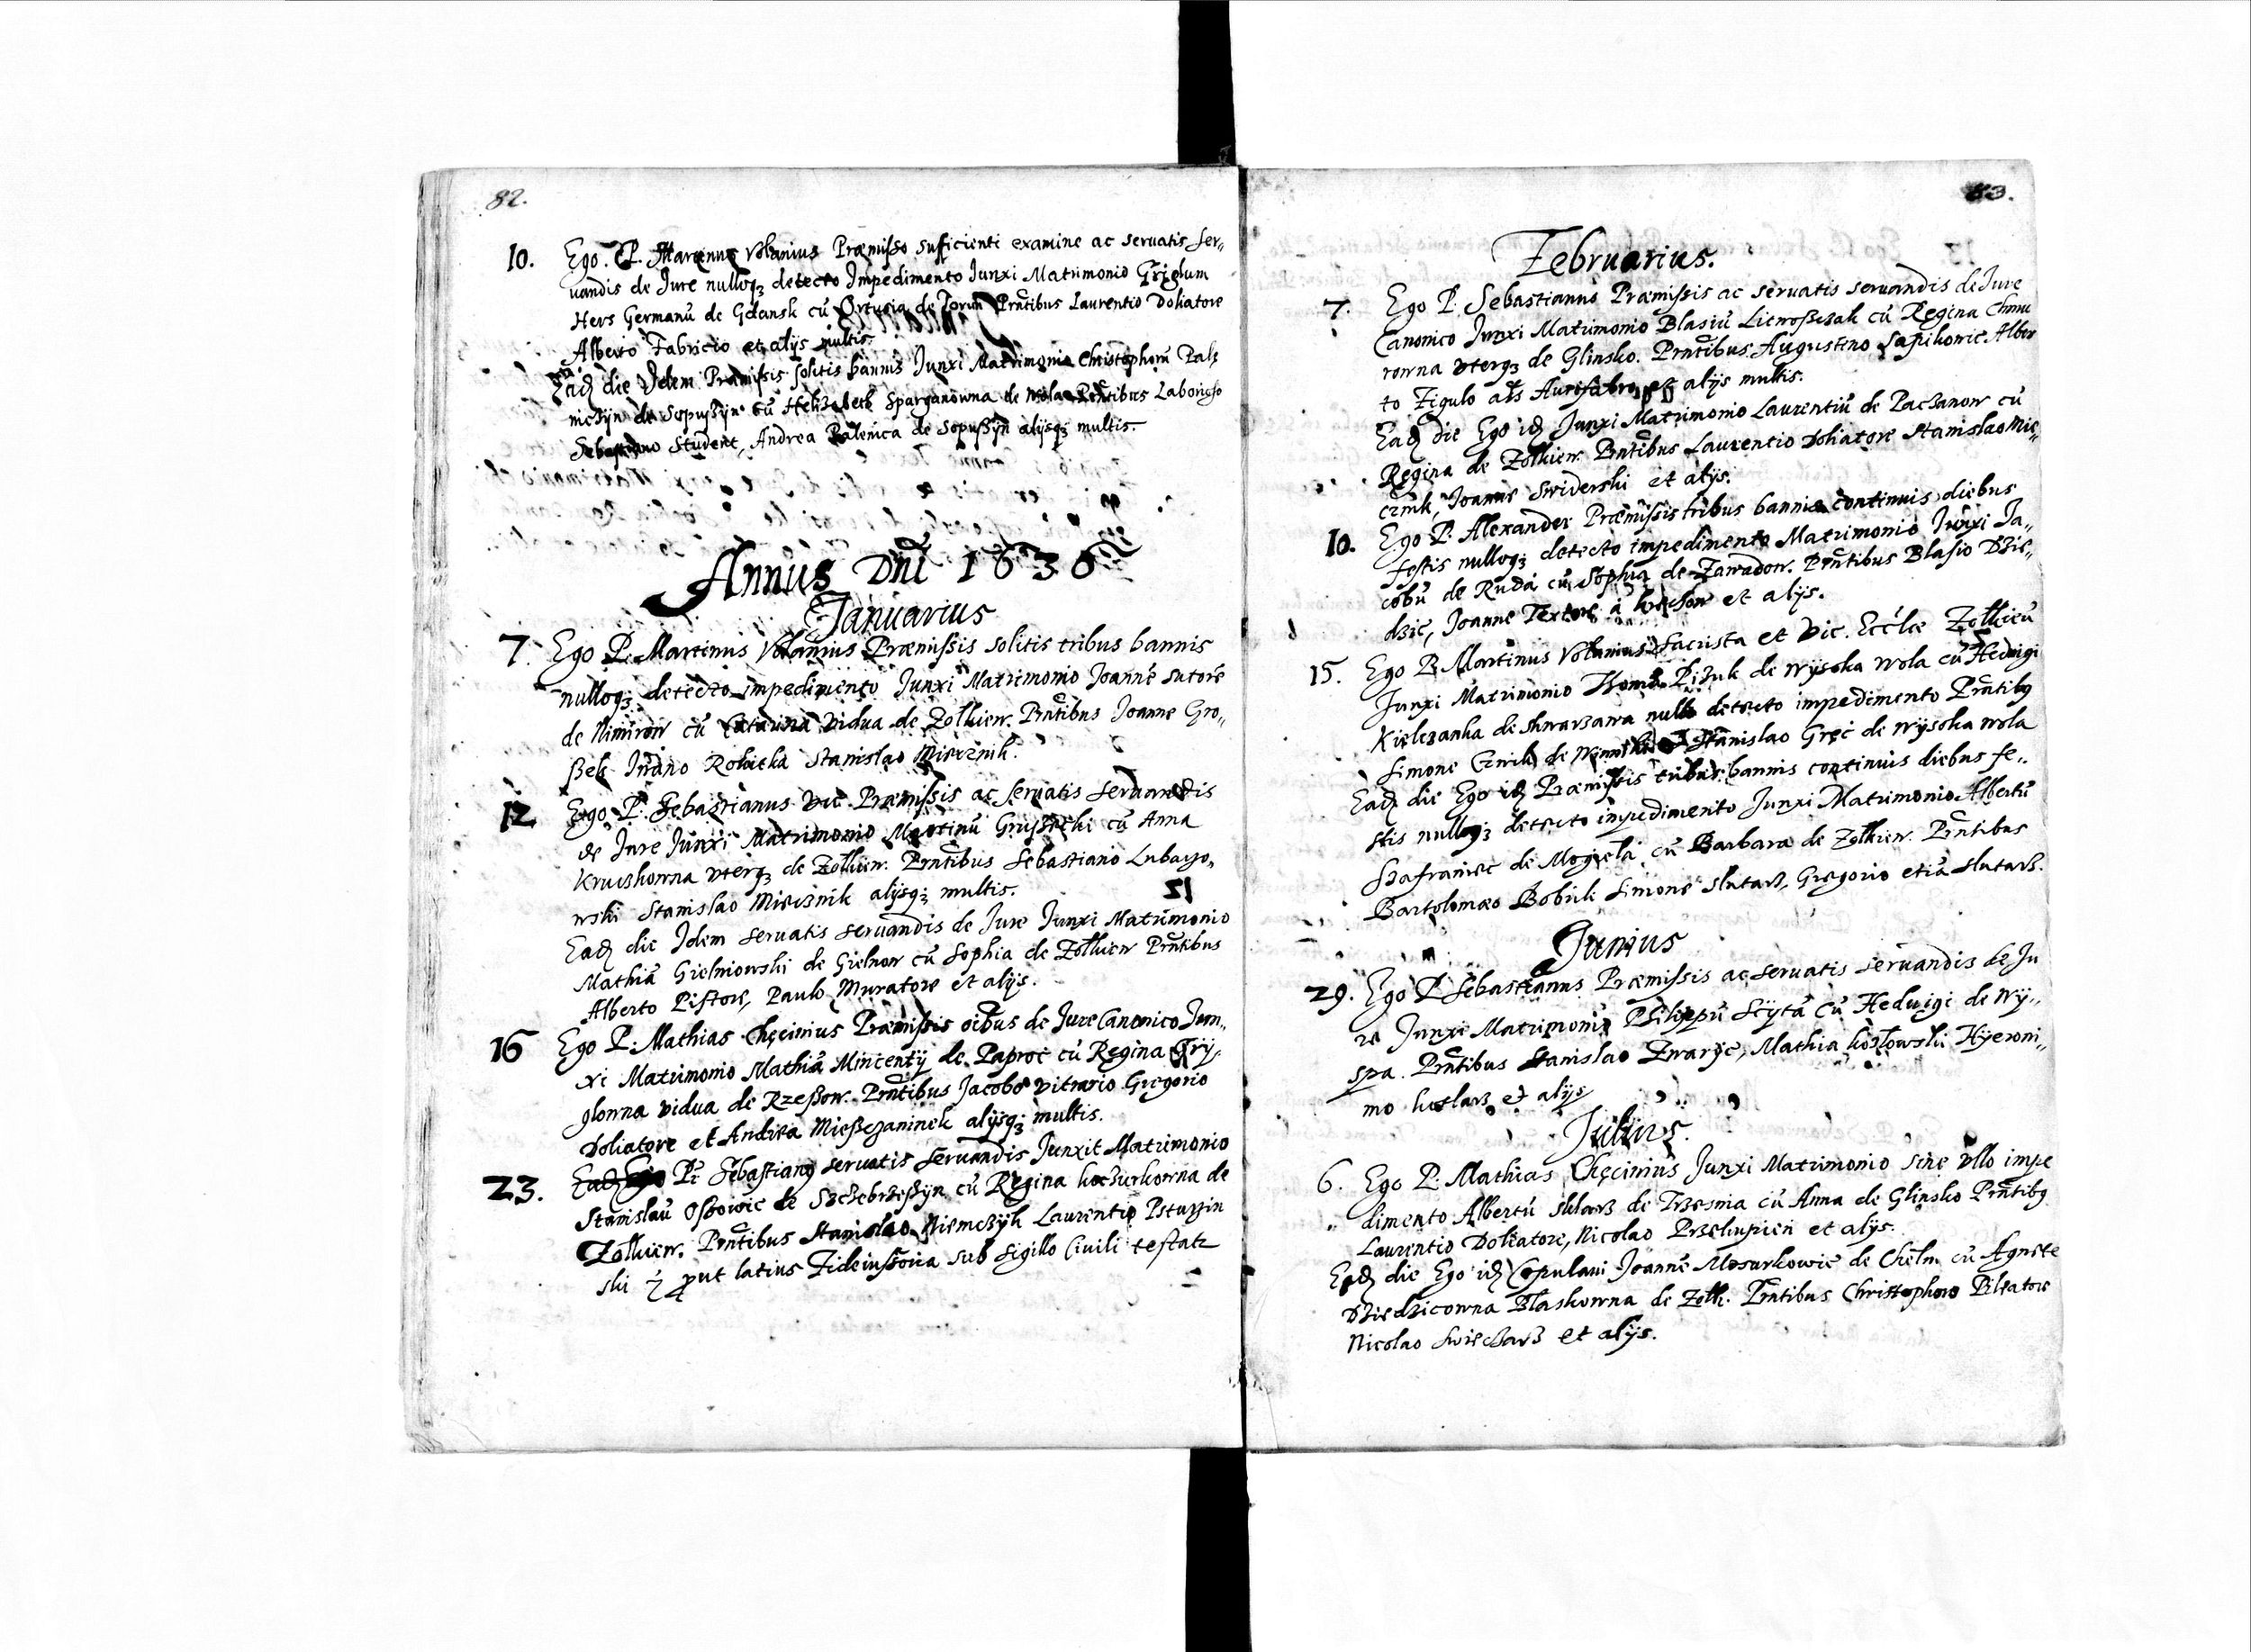 82.
10. Ego. P. Martinus Volanius Præmisso suficienti examine ac seruatis ser„
uandis de Jure nulloqз detecto Impedimento Junxi Matrimonio
Hers Germanū de Gdansk cū de Prñtibus Laurentio Doliatore
Alberto Fabricio et alijs multis.
die Idem Præmissis solitis bannis Junxi Matrimonio Christophorū
de Sopußyn cū Helizabeth Sparganowna de Wola Prñtibus
Student, Andrea Palenica de Sopußyn alijsqз multis.
Annus Dni 1636
Januarius
7. Ego P. Martinus Volanius Præmissis solitis tribus bannis
nulloqз detecto impedimento Junxi Matrimonio Joannē sutorē
de Nimirow cū vidua de Zolkiew. Prñtibus Joanne Gro„
ßek Stanislao Miecznik.
12 Ego P. Sebastianus Vic. Præmissis ac seruatis seruandis
de Jure Junxi Matrimonio Martinū cū Anna
vterqз de Zolkiew. Prñtibus Sebastiano
wski Stanislao Miecznik alijsqз multis.
Eadē die Idem seruatis seruandis de Jure Junxi Matrimonio
Mathiā Gielniowski de Gielnow cū Sophia de Zolkiew Prñtibus
Alberto Pistore, Paulo Muratore et alijs.
16 Ego P. Mathias Chęcinius Præmissis oībus de Jure Canonico Jun„
xi Matrimonio Mathiā Mincenty de Paproc cū Regina Gry„
glowna vidua de Rzeßow. Prñtibus Jacobo vitrario Gregorio
Doliatore et Andrea Mießczaninek alijsqз multis.
23. P. Sebastianus seruatis seruandis Junxit Matrimonio
Stanislaū de Szczebrzeßyn cū Regina de
Zolkiew. Prñtibus Stanislao Niemczyk Laurentio
ski prout latius sub sigillo Ciuili
83.
Februarius.
7. Ego P. Sebastianus Præmissis ac seruatis seruandis de Jure
Canonico Junxi Matrimonio Blasiū cū Regina
rowna vterqз de Glinsko. Prñtibus Augustino Alber
to Figulo Aurifabro et alijs multis.
Eadē die Ego idē Junxi Matrimonio Laurentiū de Paczanow cū
Regina de Zolkiew. Prñtibus Laurentio Doliatore Stanislao Mie„
cznik, Joanne Swiderski et alijs.
10. Ego P. Alexander Præmissis tribus bannis continuis diebus
festis nulloqз detecto impedimento Matrimonio Junxi Ja„
cobū de Ruda cū Sophia de Zawadow. Prñtibus Blasio Dzie„
dzic, Joanne Textore et alijs.
15. Ego P. Martinus Volanius Sacrista et Vic. Eccłæ Zolkieu
Junxi Matrimonio de Wysoka Wola cū Hedwigi
Kielczanka de nullo detecto impedimento Prñtibus
Simone de Stanislao Gręc de Wysoka Wola
Eadē die Ego idē Præmissis tribus bannis continuis diebus fe„
stis nulloqз detecto impedimento Junxi Matrimonio Albertū
Szafraniec de Mogiela cū Barbara de Zolkiew. Prñtibus
Bartolomæo Bobrik Simone Slutarz, Gregorio etiā Slutarz.
Junius
29. Ego P. Sebastianus Præmissis ac seruatis seruandis de Ju
re Junxi Matrimonio Philippū Scytā cū Hedwigi de Wy„
spa. Prñtibus Stanislao Zwaryc, Mathia Kozlowski Hyeroni„
mo et alijs
Julius.
6. Ego P. Mathias Chęcinius Junxi Matrimonio sine vllo impe
dimento Albertū de Trzesnia cū Anna de Glinsko Prñtibus
Laurentio Doliatore, Nicolao Przekupien et alijs.
Eadē die Ego idē Copulaui Joannē Mosurkowic de Chelm cū Agnete
Dziedzicowna Blaskowna de Zolk. Prñtibus Christophoro Pileatore
Nicolao Swieczarz et alijs.